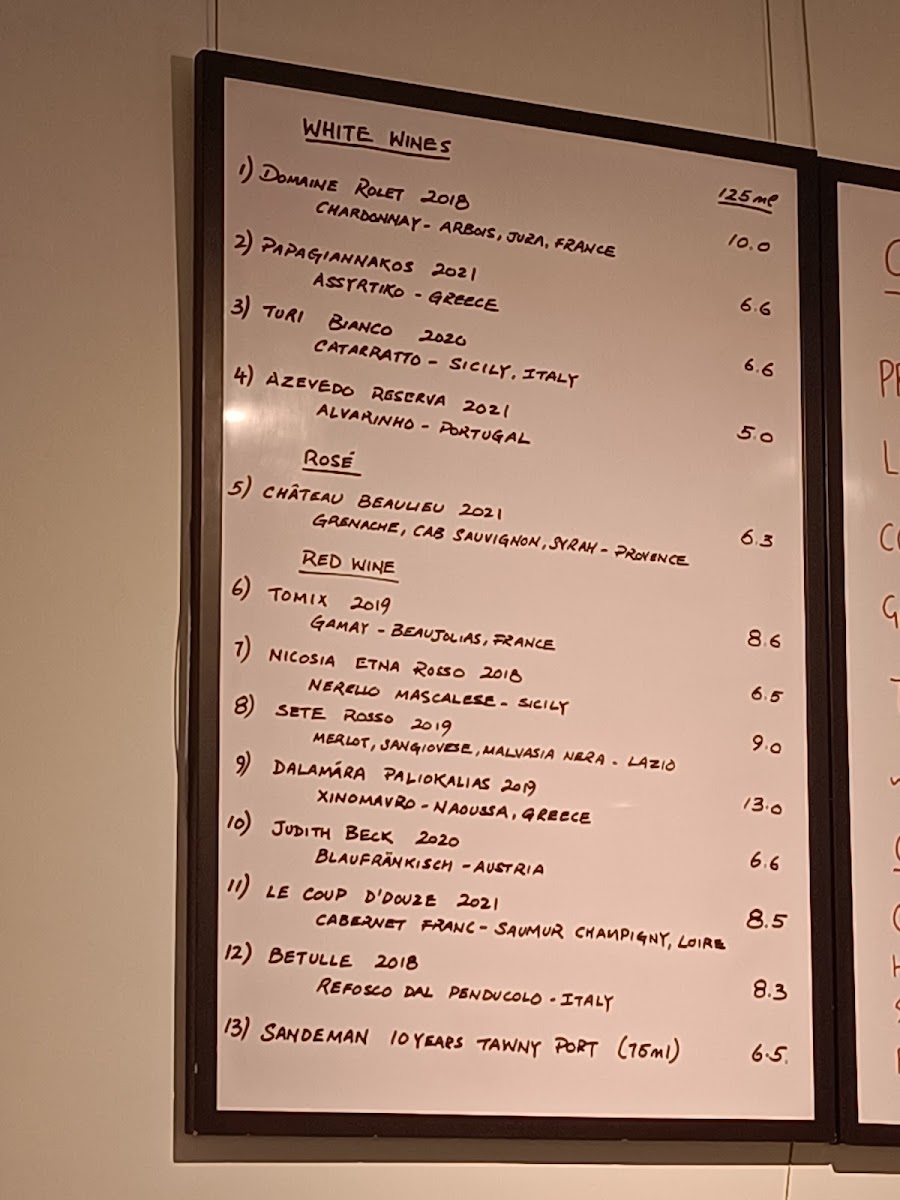 WHITE WINES
125ml
1) DOMAINE ROLET 2018
CHARDONNAY - ARBOIS, JURA, FRANCE 10.0
2) PAPAGIANNAKOS 2021
ASSYRTIKO - GREECE 6.6
3) TURI BIANCO 2020
CATARRATTO - SICILY, ITALY 6.6
4) AZEVEDO RESERVA 2021
ALVARINHO - PORTUGAL 5.0
ROSÉ
5) CHÂTEAU BEAULIEU 2021
GRENACHE, CAB SAUVIGNON, SYRAH - PROVENCE 6.3
RED WINE
6) TOMIX 2019
GAMAY - BEAUJOLIAS, FRANCE 8.6
7) NICOSIA ETNA ROSSO 2018
NERELLO MASCALESE - SICILY 6.5
8) SETE ROSSO 2019
MERLOT, SANGIOVESE, MALVASIA NERA - LAZIO 9.0
9) DALAMÁRA PALIOKALIAS 2019
XINOMAVRO - NAOUSSA, GREECE 13.0
10) JUDITH BECK 2020
BLAUFRÄNKISCH - AUSTRIA 6.6
11) LE COUP D'DOUZE 2021
CABERNET FRANC - SAUMUR CHAMPIGNY, LOIRE 8.5
12) BETULLE 2018
REFOSCO DAL PENDUCOLO - ITALY 8.3
13) SANDEMAN 10 YEARS TAWNY PORT (75ml) 6.5.